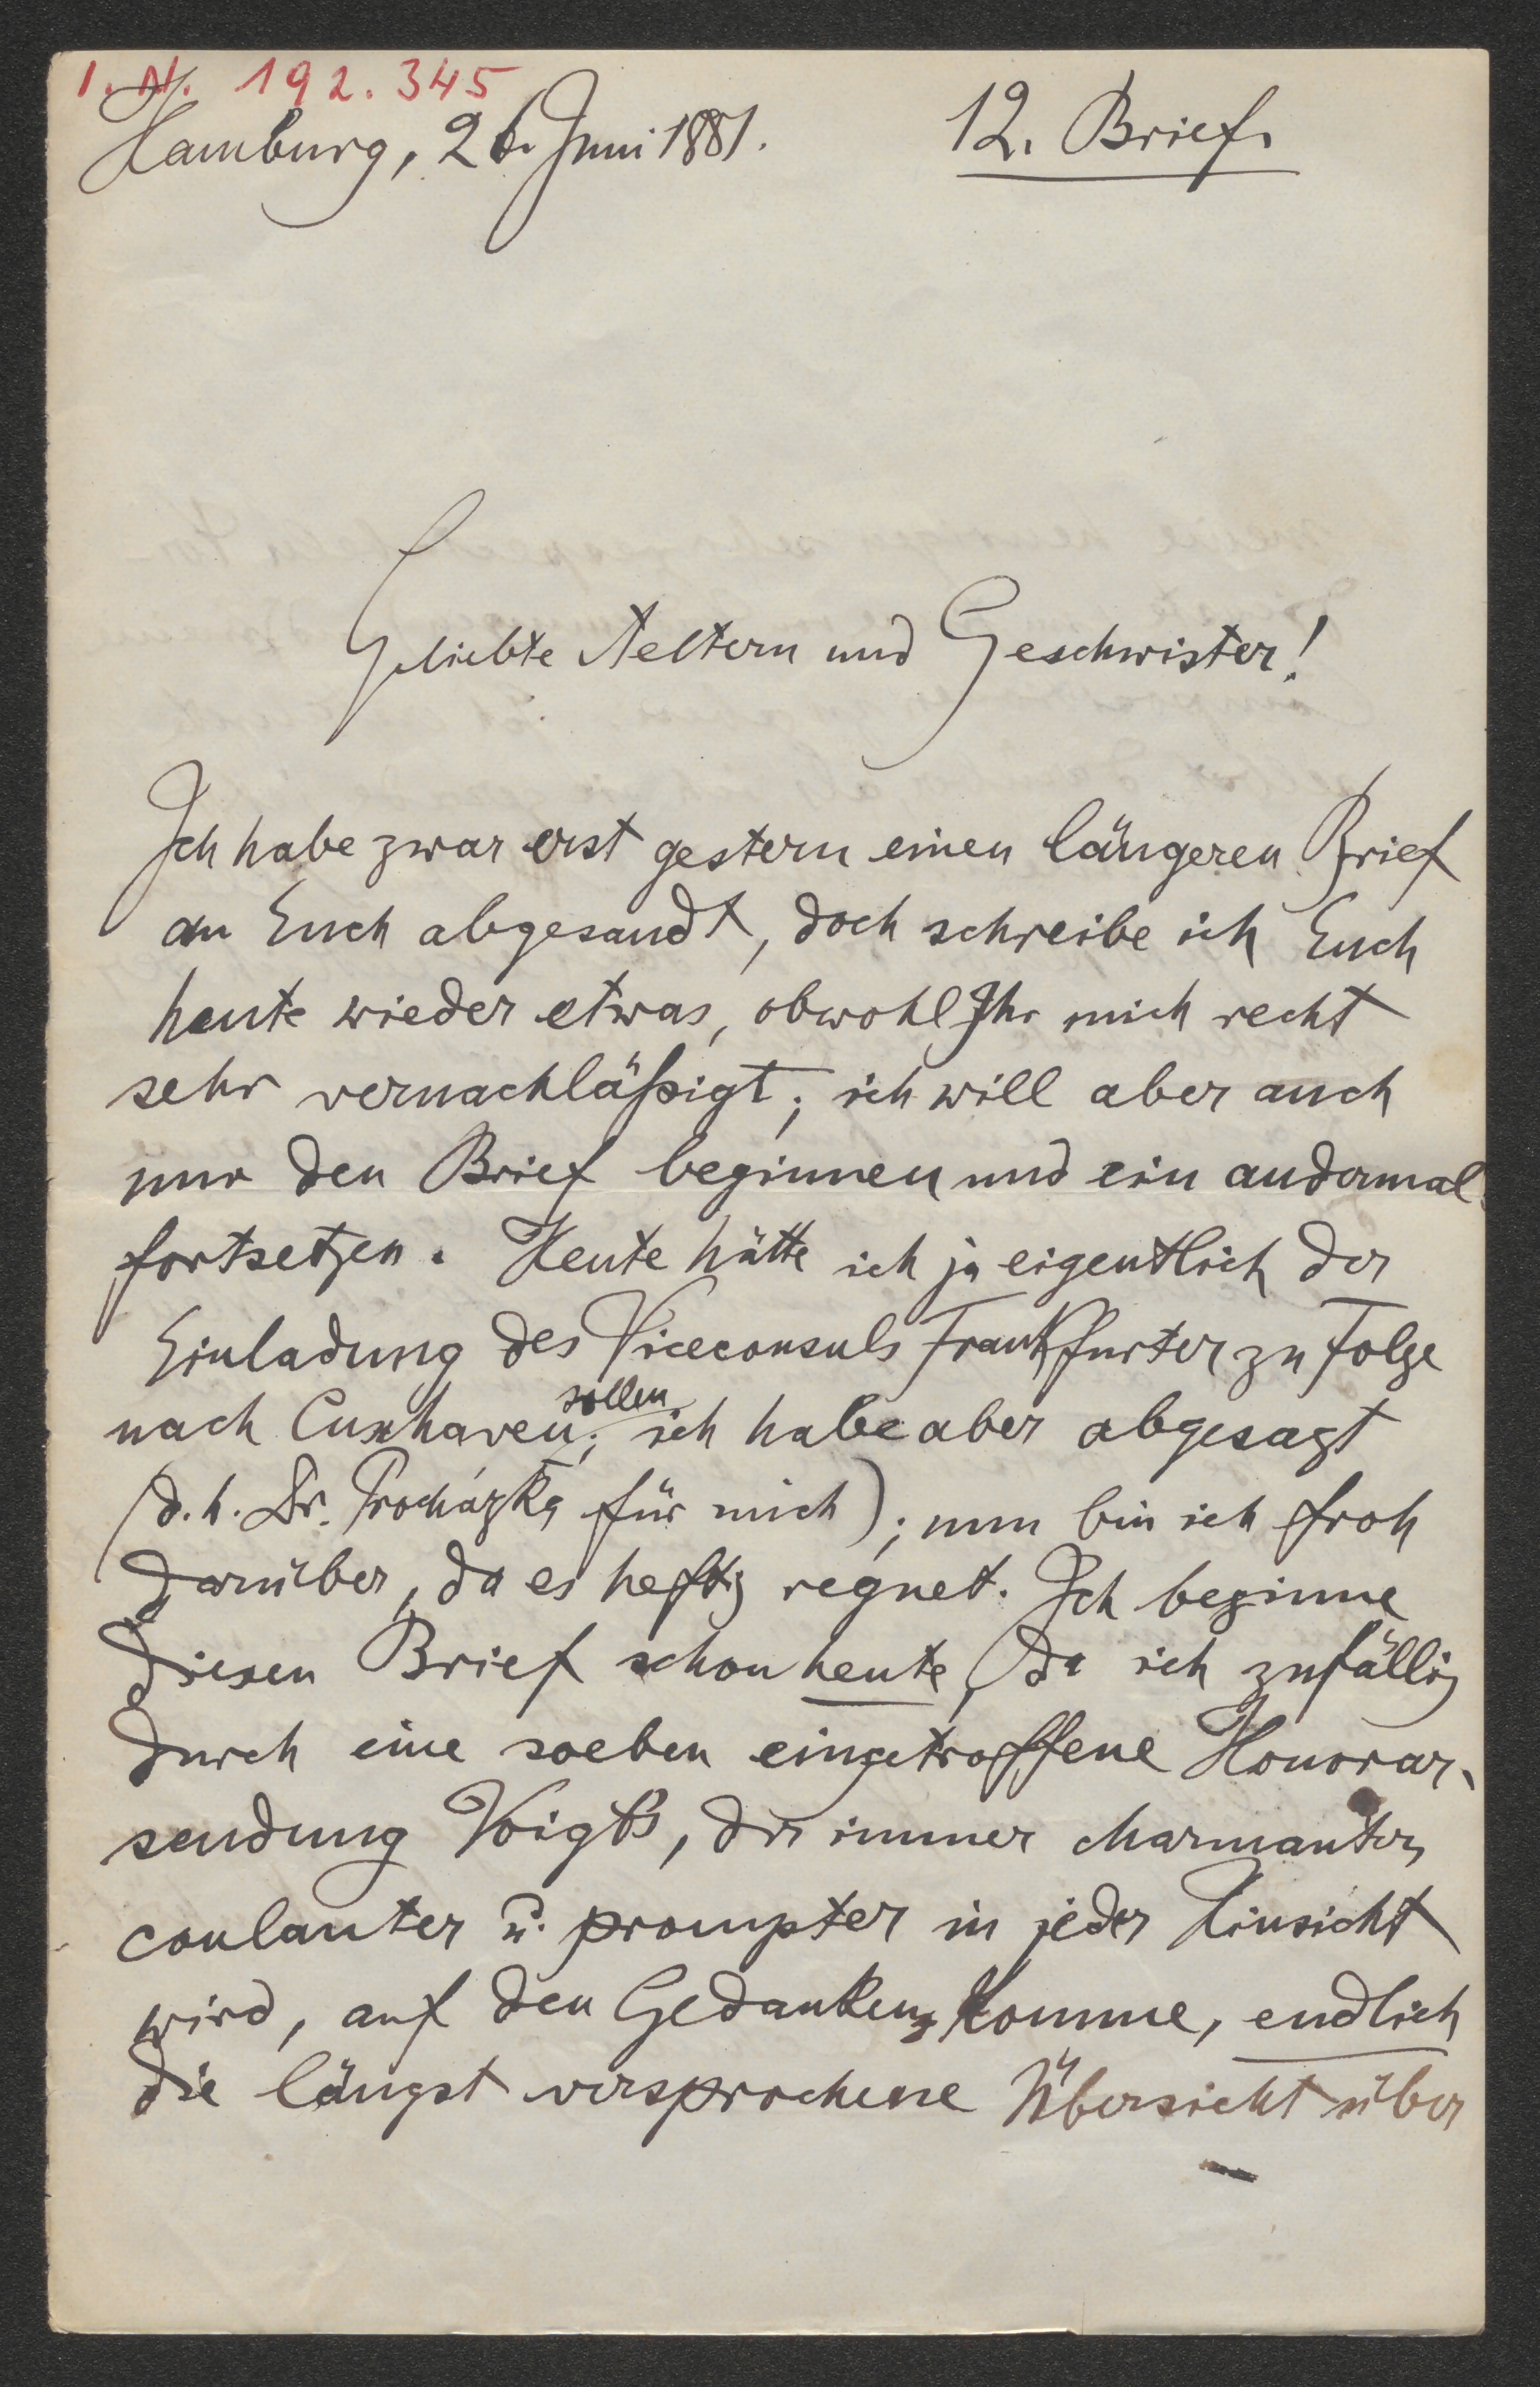 I. N. 192.345
Hamburg, 26. Juni 1881. 12. Brief.
Geliebte Aeltern und Geschwister!
Ich habe zwar erst gestern einen längeren Brief
an Euch abgesandt, doch schreibe ich Euch
heute wieder etwas, obwohl Ihr mich recht
sehr vernachläßigt; ich will aber auch
nur den Brief beginnen und ein andermal
fortsetzen. Heute hätte ich ja eigentlich der
Einladung des Viceconsuls Frankfurter zu Folge
sollen
nach Cuxhaven; ich habe aber abgesagt
(d. h. Dr. Procházka für mich); nun bin ich froh
darüber, da es heftig regnet. Ich beginne
diesen Brief schon heute, da ich zufällig
durch eine soeben eingetroffene Honorar-
sendung Voigt's, der immer charmanter,
coulanter u. prompter in jeder Hinsicht
wird, auf den Gedanken komme, endlich
die längst versprochene Übersicht über